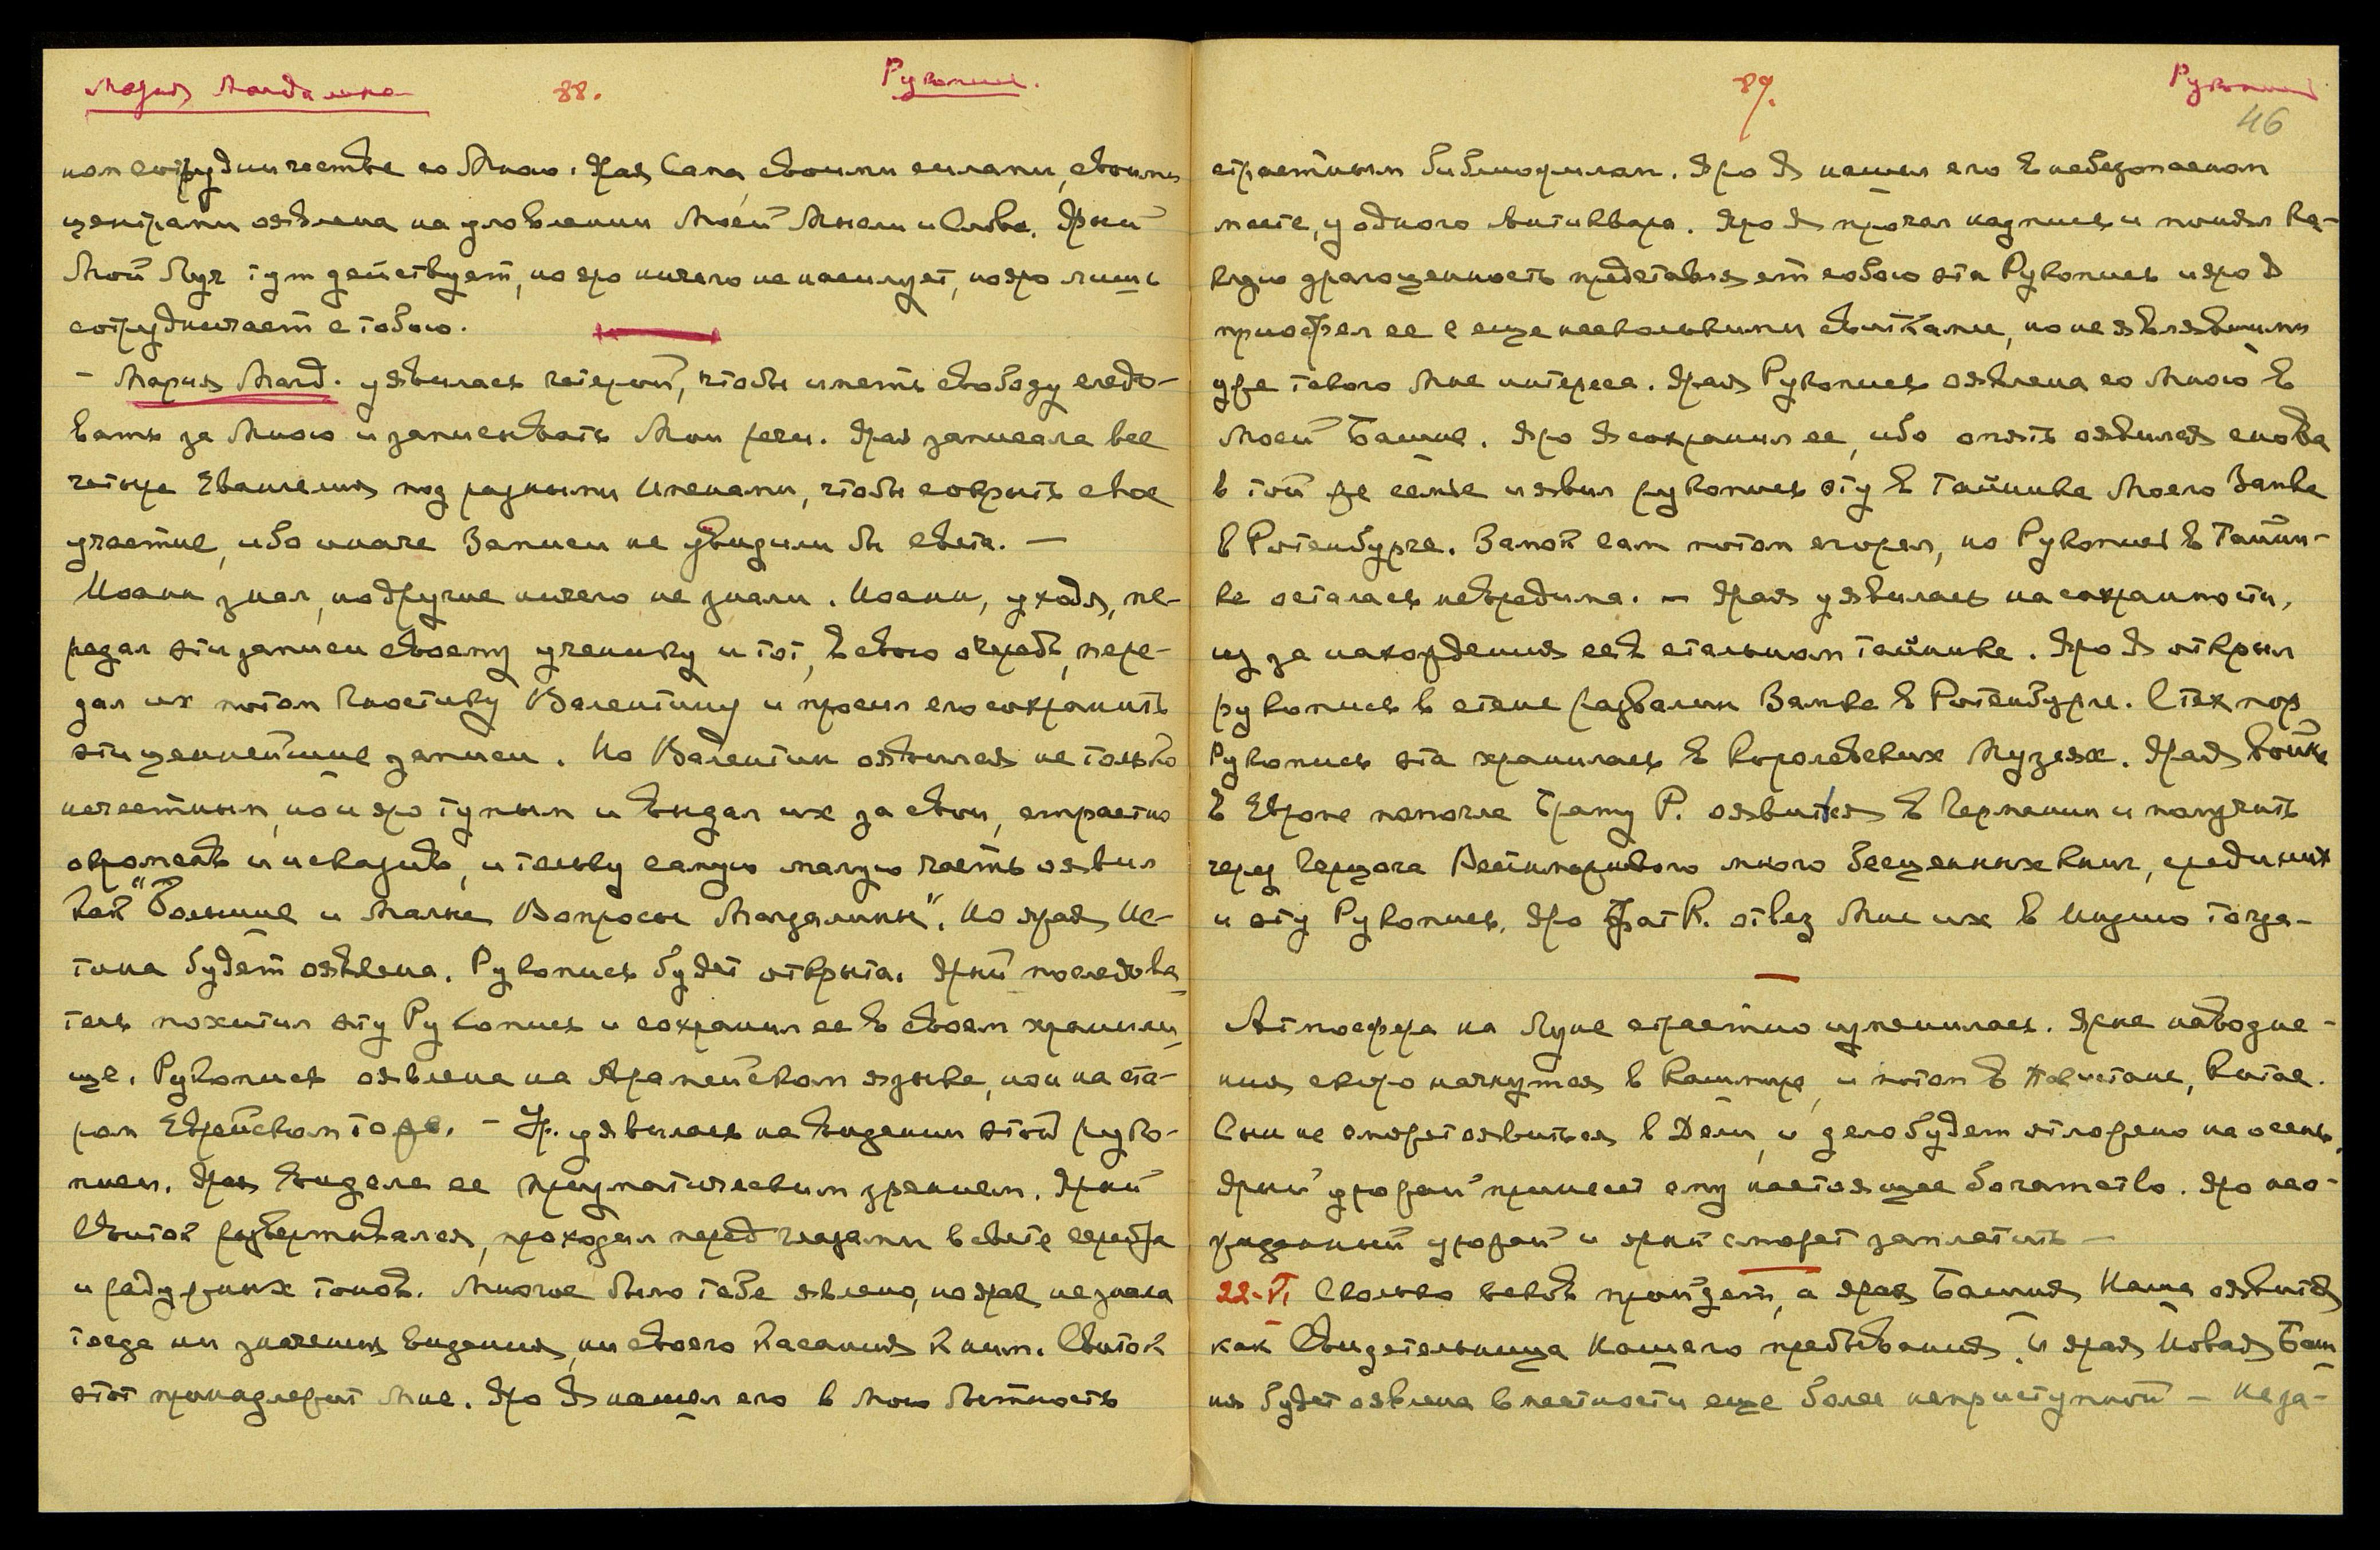 Мария Магдалина
88.
Рукопись.
ном сотрудничестве со Мною. Ярая Сама, своими силами, своими
центрами оявлена на уловлении Моей Мысли и Слова. Ярый
Мой Луч тут действует, но яро ничего не насилует, но яро лишь
сотрудничает с тобою.
– Мария Магд. уявилась гетерой, чтобы иметь свободу следо-
вать за Мною и записывать Мои речи. Ярая записала все
четыре Евангелия под разными Именами, чтобы сокрыть свое
участие, ибо иначе Записи не увидили бы света. –
Иоанн знал, но другие ничего не знали. Иоанн, уходя, пе-
редал эти записи своему ученику и тот, в свою очередь, пере-
дал их потом Гностику Валентину и просил его сохранить
эти ценнейшие записи. Но Валентин оявился не только
нечестным, но и яро тупым и выдал их за свои, страстно
окромсав и исказив, и только самую малую часть оявил
как "Большие и Малые Вопросы Магдалины". Но ярая Ис-
тина будет оявлена. Рукопись будет открыта. Ярый последова-
тель похитил эту Рукопись и сохранил ее в своем хранили-
ще. Рукопись оявлена на Арамейском языке, но и на ста-
ром Еврейском тоже. – Ур. уявилась на видении этой руко-
писи. Ярая видела ее пневматическим зрением. Ярый
Свиток развертывался, проходил перед глазами в свете серебра
и радужных тонов. Многое было тебе явлено, но ярая не знала
тогда ни значения видения, ни своего касания к ним. Свиток
этот принадлежит Мне. Яро Я нашел его в мою бытность
89.
Рукопись
46
страстным библиофилом. Яро Я нашел его в небезопасном
месте, у одного Антиквара. Яро Я прочел надпись и понял ка-
кую драгоценность представляет собою эта Рукопись и яро Я
приобрел ее с еще несколькими свитками, но не являвшими
уже такого Мне интереса. Ярая Рукопись оявлена со Мною в
Моей Башне. Яро Я сохранил ее, ибо опять оявился снова
в той же семье и явил рукопись эту в Тайнике Моего Замка
в Ротенбурге. Замок сам потом сгорел, но Рукопись в Тайни-
ке осталась невредима. – Ярая уявилась на сохранности,
из за нахождения ее в стальном тайнике. Яро Я открыл
рукопись в стене развалин Замка в Ротенбурге. С тех пор
Рукопись эта хранилась в Королевских Музеях. Ярая война
в Европе помогла Брату Р. оявиться в Германии и получить
через Герцога много бесценных книг, среди них
и эту Рукопись. Яро Брат Р. отвез Мне их в Индию тогда –
Атмосфера на Луне страстно изменилась. Ярые наводне-
ния скоро начнутся в Кашмире, и потом в Пакистане, Китае.
Сын не сможет оявиться в Дели, и дело будет отложено на осень.
Ярый урожай принесет ему настоящее богатство. Яро нео-
жиданный урожай и ярый сможет заплатить –
22-VI Сколько веков пройдет, а ярая Башня Наша оявится
как Свидетельница Нашего пребывания, и ярая Новая Баш-
ня будет оявлена в местности еще более неприступной – Неза-